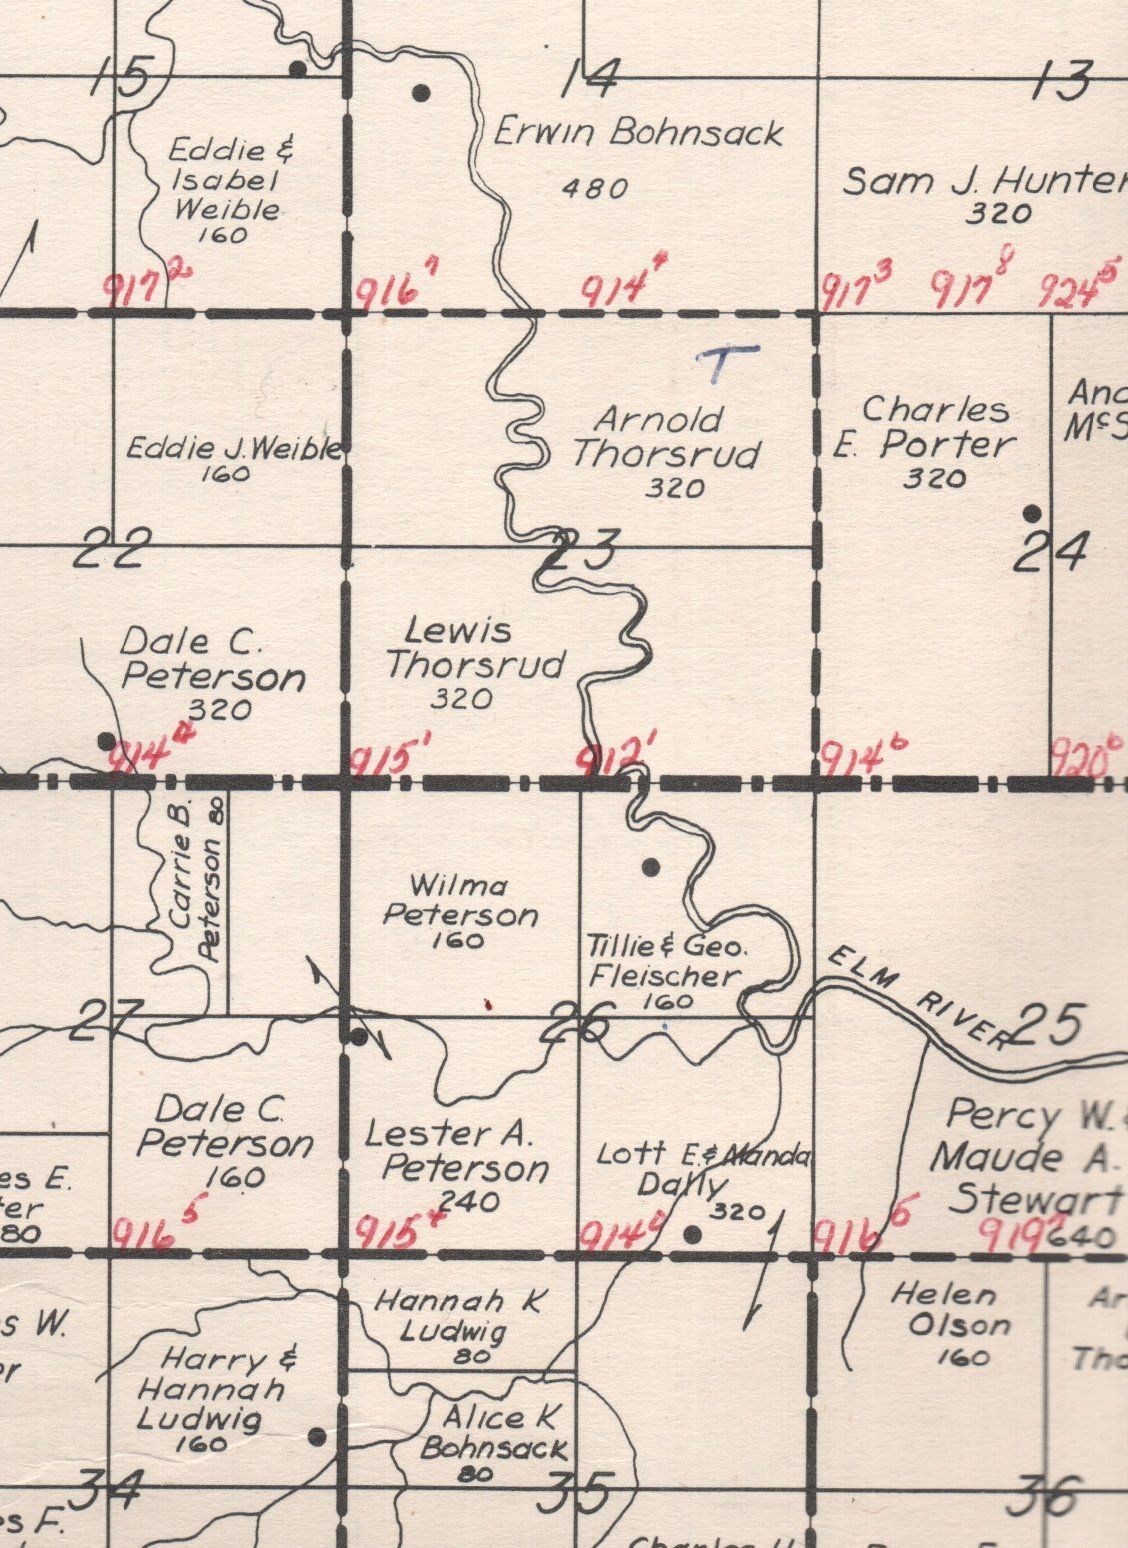 15
14
13
Erwin Bohnsack
480
Eddie &
Isabel
Weible
160
Sam J. Hunter
320
917²
916⁷
914⁴
917³
917⁸
924⁵
T
Arnold
Thorsrud
320
Charles
E. Porter
320
Eddie J. Weible
160
22
23
24
Dale C.
Peterson
320
Lewis
Thorsrud
320
914⁴
915¹
912¹
914⁶
920⁶
Carrie B.
Peterson 80
Wilma
Peterson
160
Tillie & Geo.
Fleischer
160
ELM RIVER
27
26
25
Dale C.
Peterson
160
Lester A.
Peterson
240
Lott E. & Manda
Dally
320
Percy W. &
Maude A.
Stewart
640
es E.
ter
80
916⁵
915⁴
914
916
919
Hannah K
Ludwig
80
Helen
Olson
160
s W.
Harry &
Hannah
Ludwig
160
Alice K
Bohnsack
80
34
35
36
s F.
Charles H